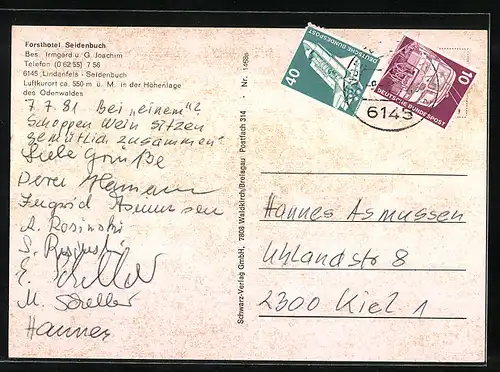 Forsthotel Seidenbuch
Bes. Irmgard u. G. Joachim
Telefon (0 62 55) 7 56
6145 Lindenfels - Seidenbuch
Luftkurort ca. 550 m ü. M. in der Höhenlage
des Odenwaldes
7.7.81 Bei „einem"?
Schoppen Wein sitzen
gemütlich zusammen
Liebe Grüße
Ingrid Asmussen
A. Rosinski
S. Rosinski
E. Scheller
M. Scheller
Hannes
Nr. 1468p
Schwarz-Verlag GmbH, 7808 Waldkirch/Breisgau Postfach 314
40
DEUTSCHE BUNDESPOST
10
DEUTSCHE BUNDESPOST
6145
Hannes Asmussen
Uhlandstr 8
2300 Kiel 1